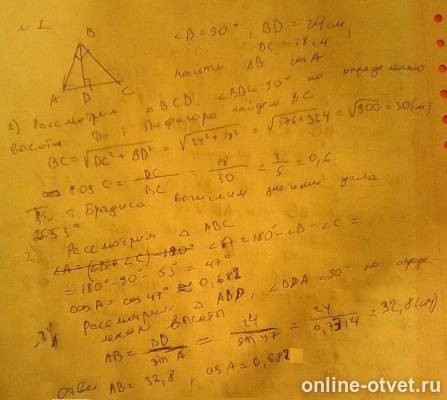 №1
∠B=90°, BD=24см,
DC=18см
Найти AB cosA
B
A D C
1) Рассмотрим △BCD, ∠BDC=90° по определению
высоты. По т. Пифагора найдем BC
BC=√DC²+BD² = √24²+18² = √576+324 = √900=30(см)
cos C = DC/BC = 18/30 = 3/5 = 0,6.
По т. Брадиса вычислим значение угла
≈53°
2 Рассмотрим △ABC
∠A=(∠B+∠C)-180° ∠A=180°-∠B-∠C=
=180°-90°-53°=47°
cosA=cos47°≈0,682
3) Рассмотрим △ABD, ∠BDA=90° по опреде-
лению высоты
AB= BD/sin A = 24/sin 47 = 24/0,7314 = 32,8(см)
Ответ AB=32,8, cosA=0,682
online-otvet.ru